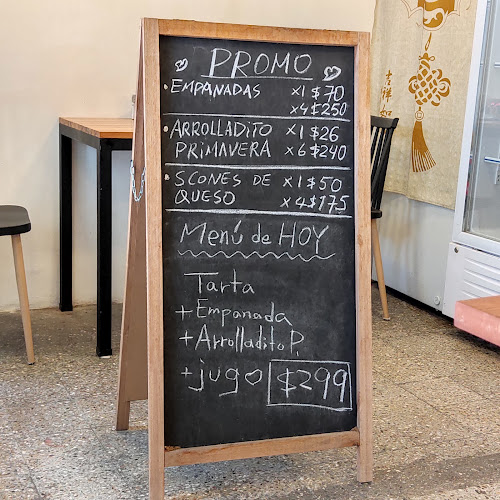 PROMO
EMPANADAS x1 $70
x4 $250
ARROLLADITO x1 $26
PRIMAVERA x6 $240
SCONES DE x1 $50
QUESO x4 $175
Menú de HOY
Tarta
+ Empanada
+ Arrolladito P.
+ jugo $299